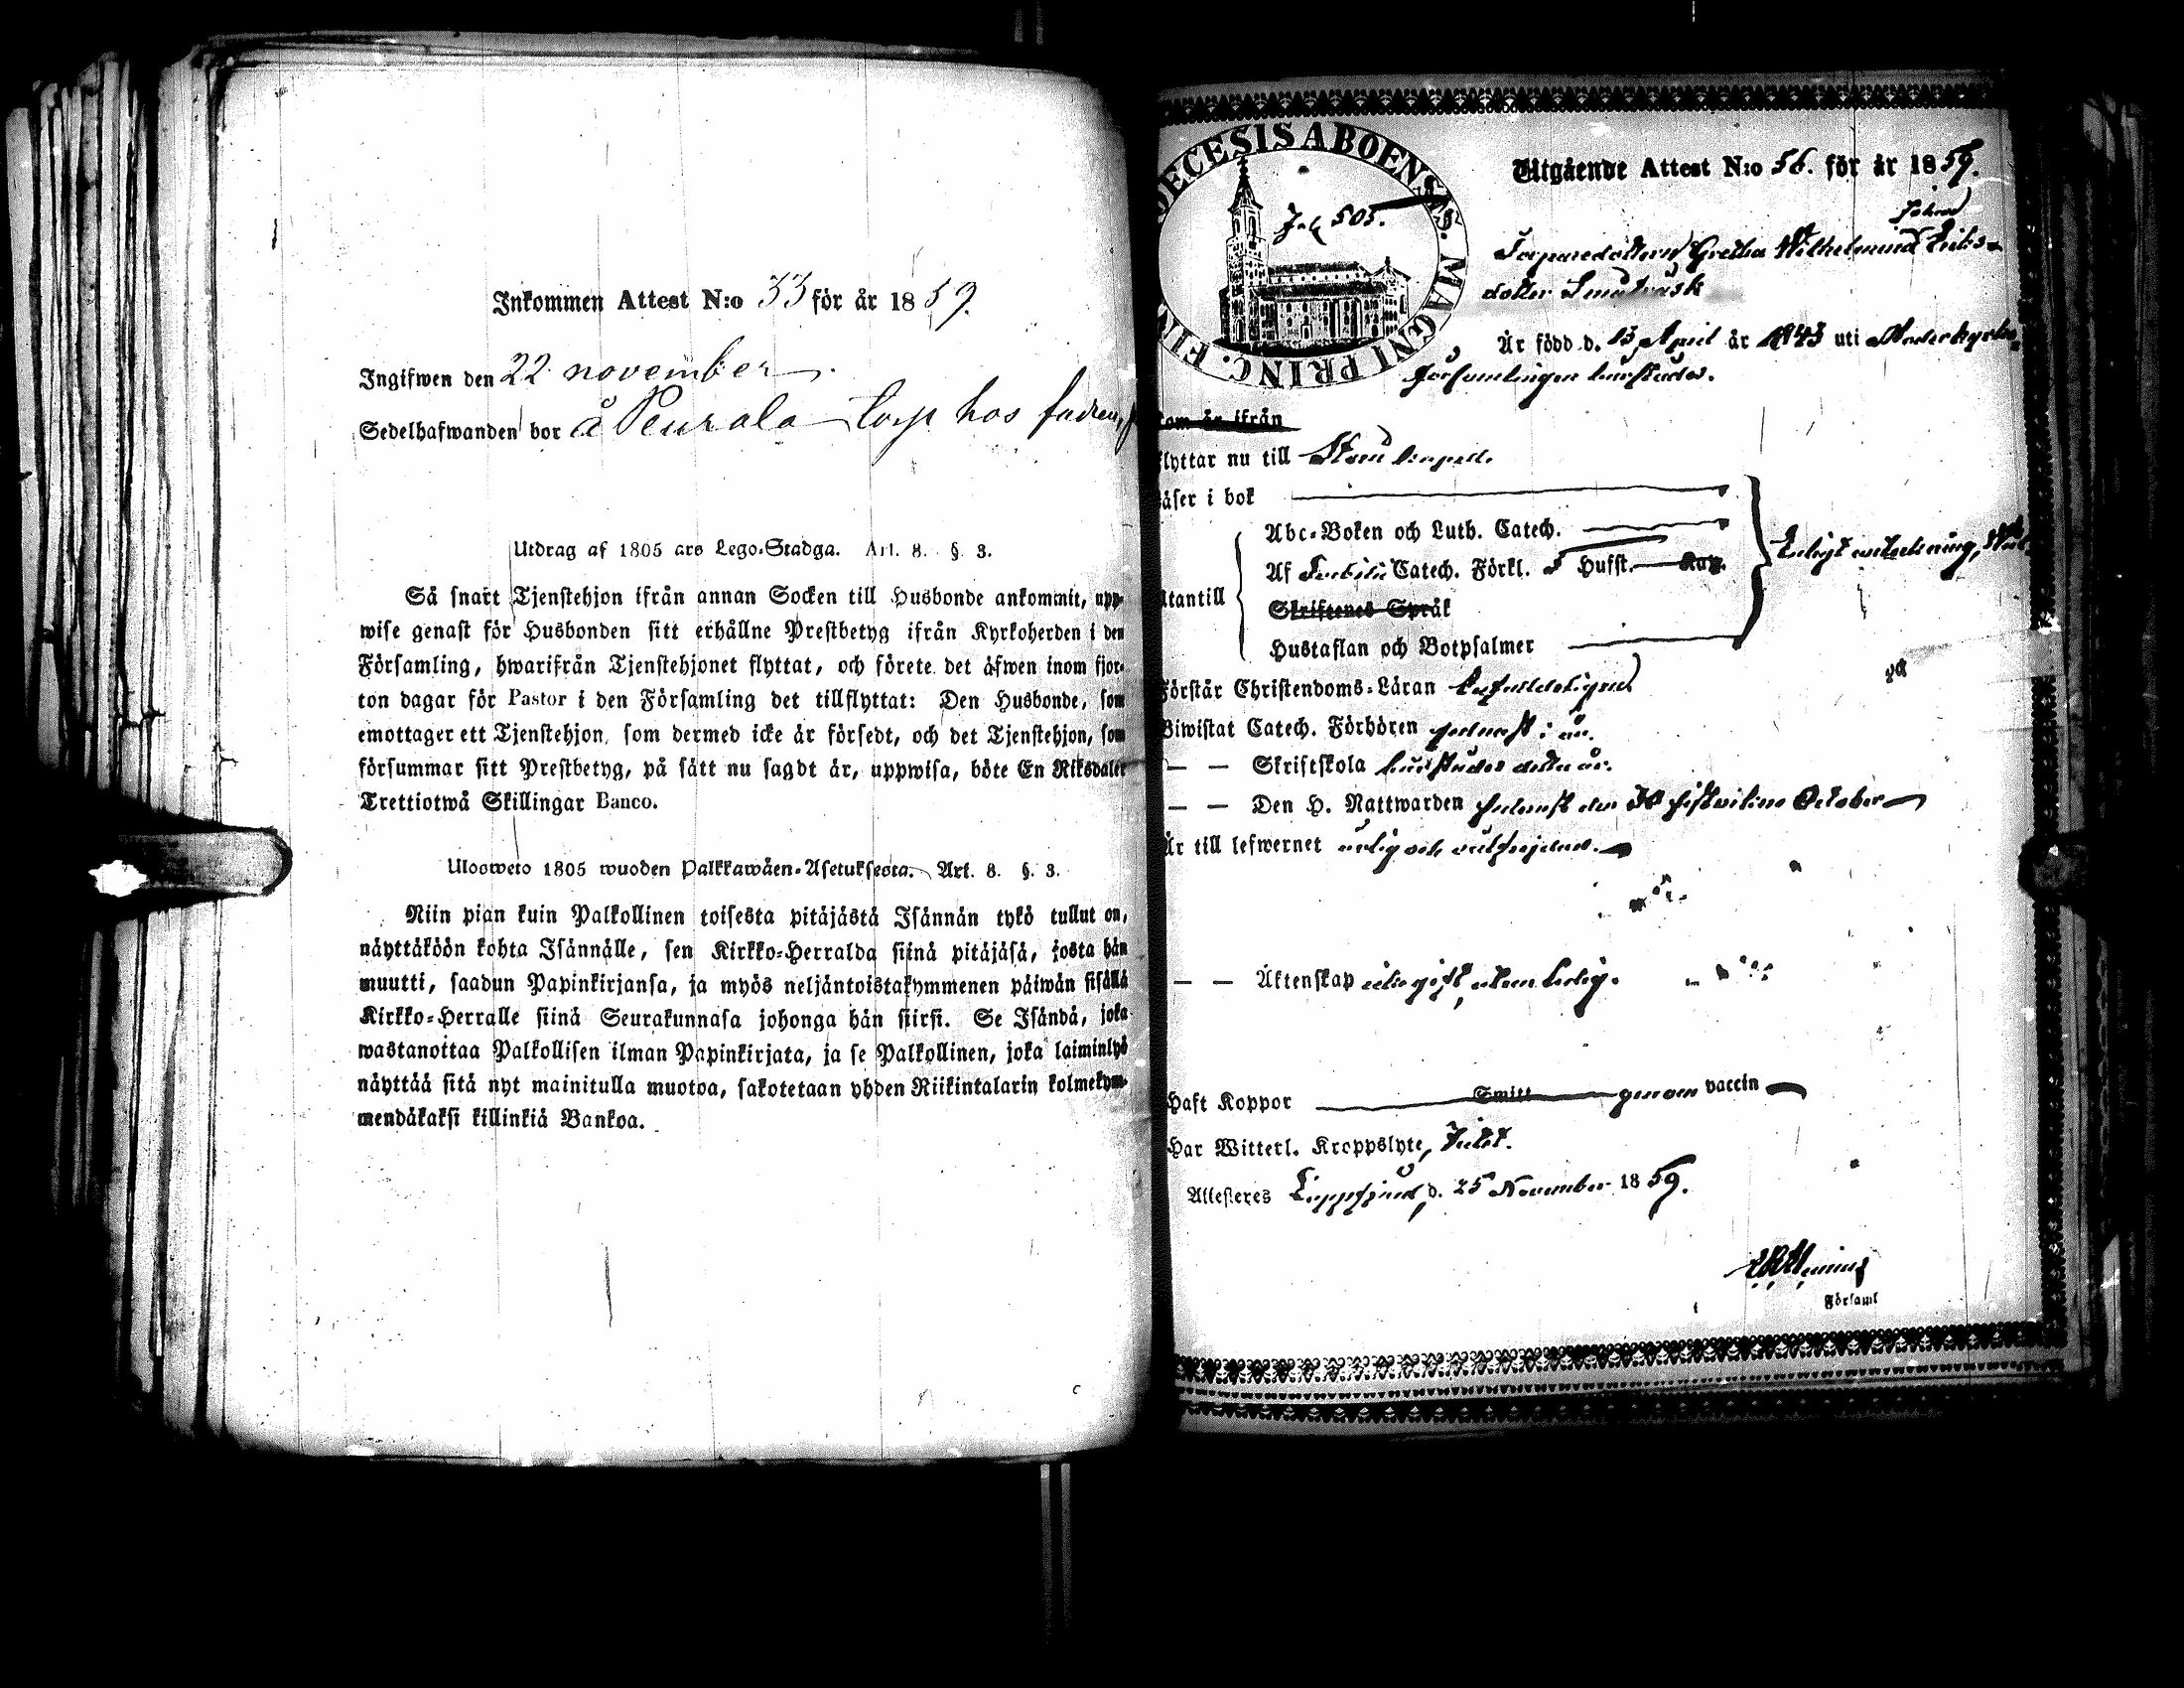 Inkommen Attest N:o 33 för år 1859.
Ingifwen den 22 november.
Sedelhafwanden bor å Peurala torp hos fadren
Utdrag af 1805 års Lego-Stadga. Art. 8. §. 3.
Så snart Tjenstehjon ifrån annan Socken till Husbonde ankommit, upp-
wise genast för Husbonden sitt erhållne Prestbetyg ifrån Kyrkoherden i den
Församling, hwarifrån Tjenstehjonet flyttat, och förete det äfwen inom fjor-
ton dagar för Pastor i den Församling det tillflyttat: Den Husbonde, som
emottager ett Tjenstehjon, som dermed icke är försedt, och det Tjenstehjon, som
försummar sitt Prestbetyg, på sätt nu sagdt är, uppwisa, böte En Riksdaler
Trettiotwå Skillingar Banco.
Ulosweto 1805 wuoden Palkkawäen-Asetuksesta. Art. 8. §. 3.
Niin pian kuin Palkollinen toisesta pitäjästä Isännän tykö tullut on,
näyttäköön kohta Isännälle, sen Kirkko-Herralda siinä pitäjäsä, josta hän
muutti, saadun Papinkirjansa, ja myös neljäntoistakymmenen päiwän sisällä
Kirkko-Herralle siinä Seurakunnasa johonga hän siirsi. Se Isändä, joka
wastanottaa Palkollisen ilman Papinkirjata, ja se Palkollinen, joka laiminlyö
näyttää sitä nyt mainitulla muotoa, sakotetaan yhden Riikintalarin kolmekym-
mendäkaksi killinkiä Bankoa.
OECESIS ABOENSIS. MAGNI PRINC. FIN
505.
Utgående Attest N:o 56. för år 1859.
Johan
Torparedottern Gretha Wilhelmina Eriks-
dotter
Är född d. 13 April år 1843 uti Moderkyrko-
församlingen härstädes.
kom år ifrån
flyttar nu till kapell.
läser i bok
Abc-Boken och Luth. Catech.
Af Catech. Förkl. Husst. Kap.
Enligt anteckning,
utantill
Skriftenes Språk
Hustaflan och Botpsalmer
Förstår Christendoms-Läran
Biwistat Catech. Förhören sednast i år.
— — Skriftskola härstädes detta år.
— — Den H. Nattwarden sednast den 30 sistvikne October
Är till lefwernet ärlig och
— — Äktenskap icke gift, utan ledig.
Haft Koppor Smitt genom vaccin
Har Witterl. Kroppslyte,
Attesteres Lappfjärd, d. 25 November 1859.
Församl